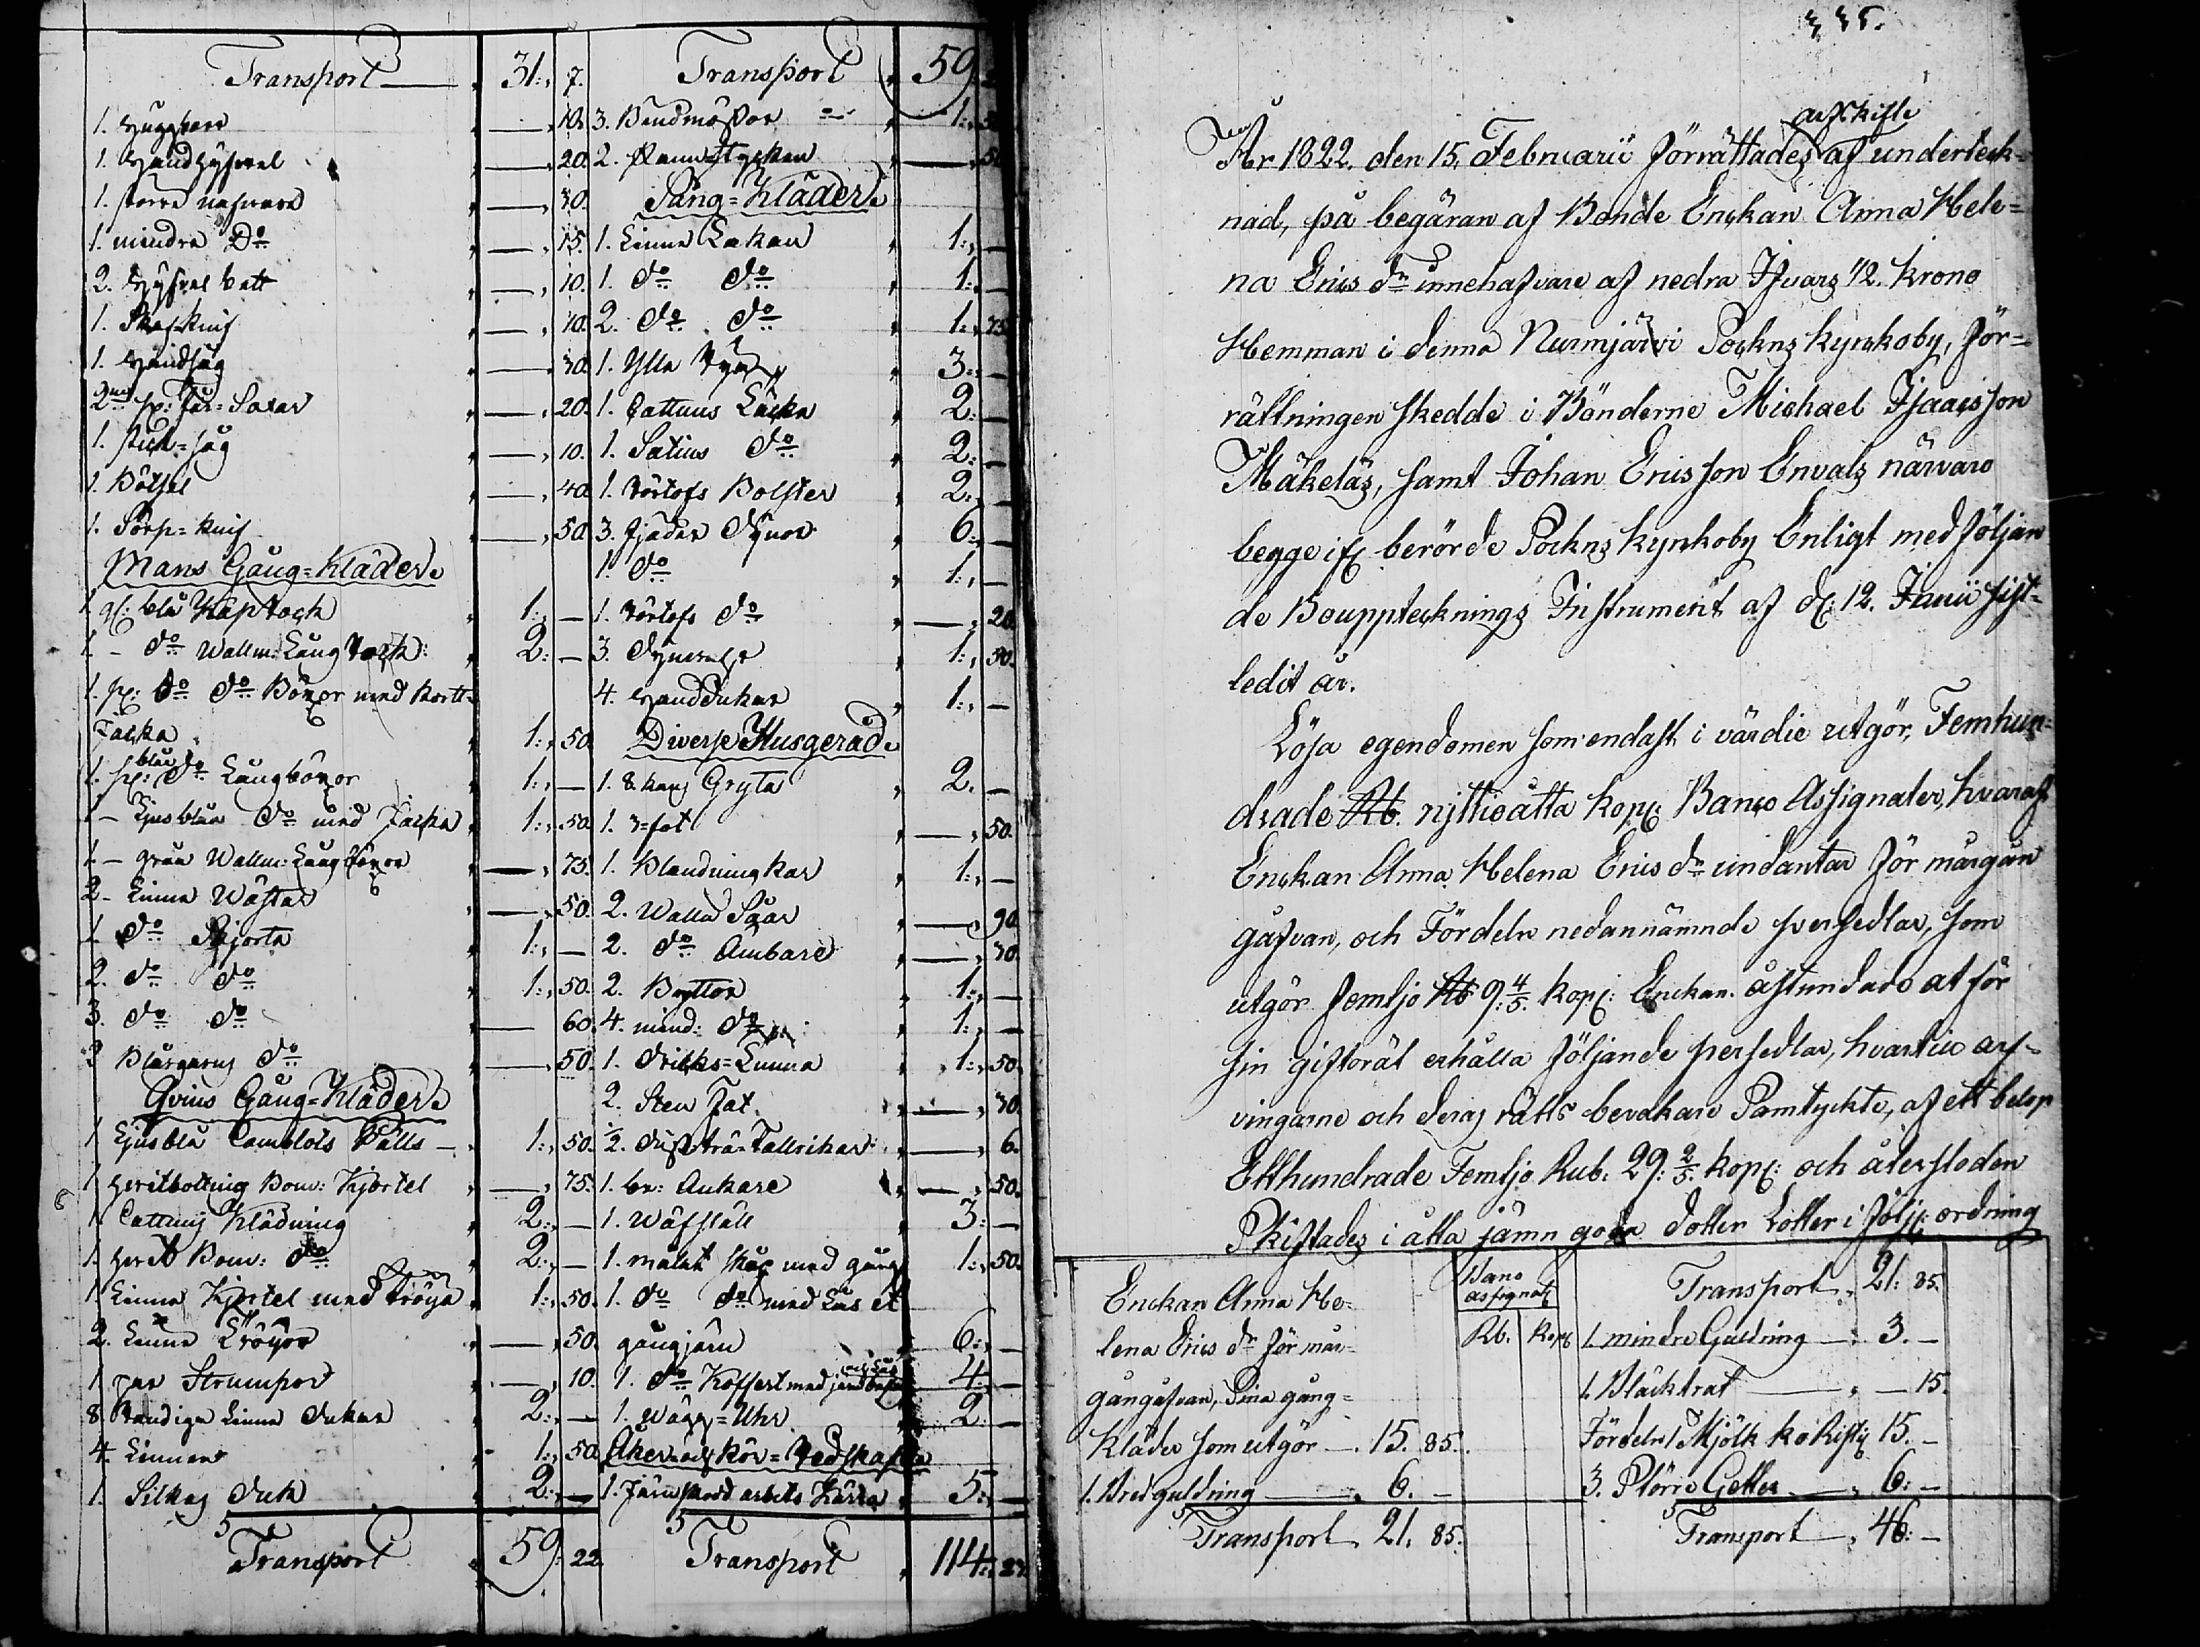 Transport 31: 7.
1. Huggjern 10.
1. Handhyfvel 20.
1. större nafvare 30.
1. mindre Do 15.
2. Hyfvel bett 10.
1. Skaf-knif 10.
1. Handsåg 30.
2ne pr: Får-Saxar 20.
1. stick-såg 10.
1. Bötsel 40.
1. Sörp-knif 50.
Mans Gång-Kläder.
1. gl: blå Kaprock 1: —
1. - do Wallm: Lång Rock: 2: —
1. pr: do do Böxor med kort
Jacka 1: 50.
1. pr: blåa do Långböxor 1: —
1 - Ljusblåa do med Jacka 1: 50.
1 - gråa Wallm: Lång Böxor 75.
2 - Linne Wästar 50.
1. do Skjorta 1: —
2. do do 1: 50.
3. do do 60.
3 Blårgarns do 50.
Qvins Gång-Kläder.
1 Ljusblå Camlots Välls 1: 50.
1 Bom: Kjortel 75.
1. Cattuns Klädning 2: —
1. Bom: do 2: —
1. Linne Kjortel med tröya 1: 50.
2. Linne Tröyor 50.
1 par Strumpor 10.
8. Randiga Linne dukar 2: —
4. Linnen 1: 50.
1. Silkes duk 2: —
Transport 59: 22.
Transport 59
3. Bindmössor 1:
2. stycken 50
Säng-Kläder.
1. Linne Lakan 1: —
1. do do 1: —
2. do do 1: 75.
1. Ylle 3: —
1. Cattuns Täcke 2: —
1. Satins do 2: —
1. Tårtofs Bolster 2: —
3. Fjäder Dynor 6: —
1. do 1: —
1. Tårtofs do 20.
3. 1: 50.
4. Handdukar 1: —
Diverse Husgeråd.
1. 8 kans Gryta 2. —
1. 3-fot 50.
1. Blandningkar 1: —
2. Såar 90.
2. do Ämbare 30.
2. Byttor 1: —
4. mind: do 1: —
1. Dricks-Tunna 1: 50.
2. Sten Fat 30.
1/2. duss trä-Tallrikar 6.
1. br: Ankare 50.
1. Wäfställ 3: —
1. målat skåp med gång 1: 50.
1. do do med Lås et
gångjärn 6: —
1. do Koffert med järnbeslag och Lås 4: —
1. Wägg-Uhr 2: —
Åker och Kör-Redskap
1. Järnskodd arbets Kärra 5: —
Transport 114: 27.
335.
År 1822. den 15. Februarii förrättades arfskifte af underteck-
nad, på begäran af Bonde Enckan Anna Hele-
na Erics dr innehafvare af nedra Ifvars 1/2. Krono
Hemman i denna Nurmjärvi Sockns kyrkoby, för-
rättningen skedde i Bönderne Michael Isaacsson
Mäkeläs, samt Johan Ericsson Envals närvaro
begge ifr. berörde Sockns kyrkoby Enligt med följan
de Bouppteckningz Instrument af d: 12. Junii sist-
ledit år.
Lösa egendomen som endast i värdie utgör, Femhun-
drade Rb. njttioåtta kop: Banco Assignater, hvaraf
Enckan Anna Helena Erics dr undantar för morgon
gåfvan, och Fördeln nedannämnde persedlar, som
utgör femtjo Rb 9: 4/5. kop: Enckan åstundade at för
sin giftorät erhålla följande persedlar, hvartil arf-
vingarne och deras rätts bevakare Samtyckte, af ett belop
Etthundrade Femtjo Rub. 29: 2/5. kop: och återstoden
Skiftades i åtta jämn goda dotter Lotter i följ: ordning
Enckan Anna He-
lena Erics dr för mor-
gongåfvan, Sina gång-
kläder som utgör 15. 85.
1. Bred guldring 6. —
Transport 21. 85.
Banco assignat:
Rb. kop
Transport 21: 85.
1. mindre Guldring 3. —
1. Bläcktrat — 15.
Fördeln 1 Mjölk ko Ristig 15. —
3. Större Getter 6: —
Transport 46: —